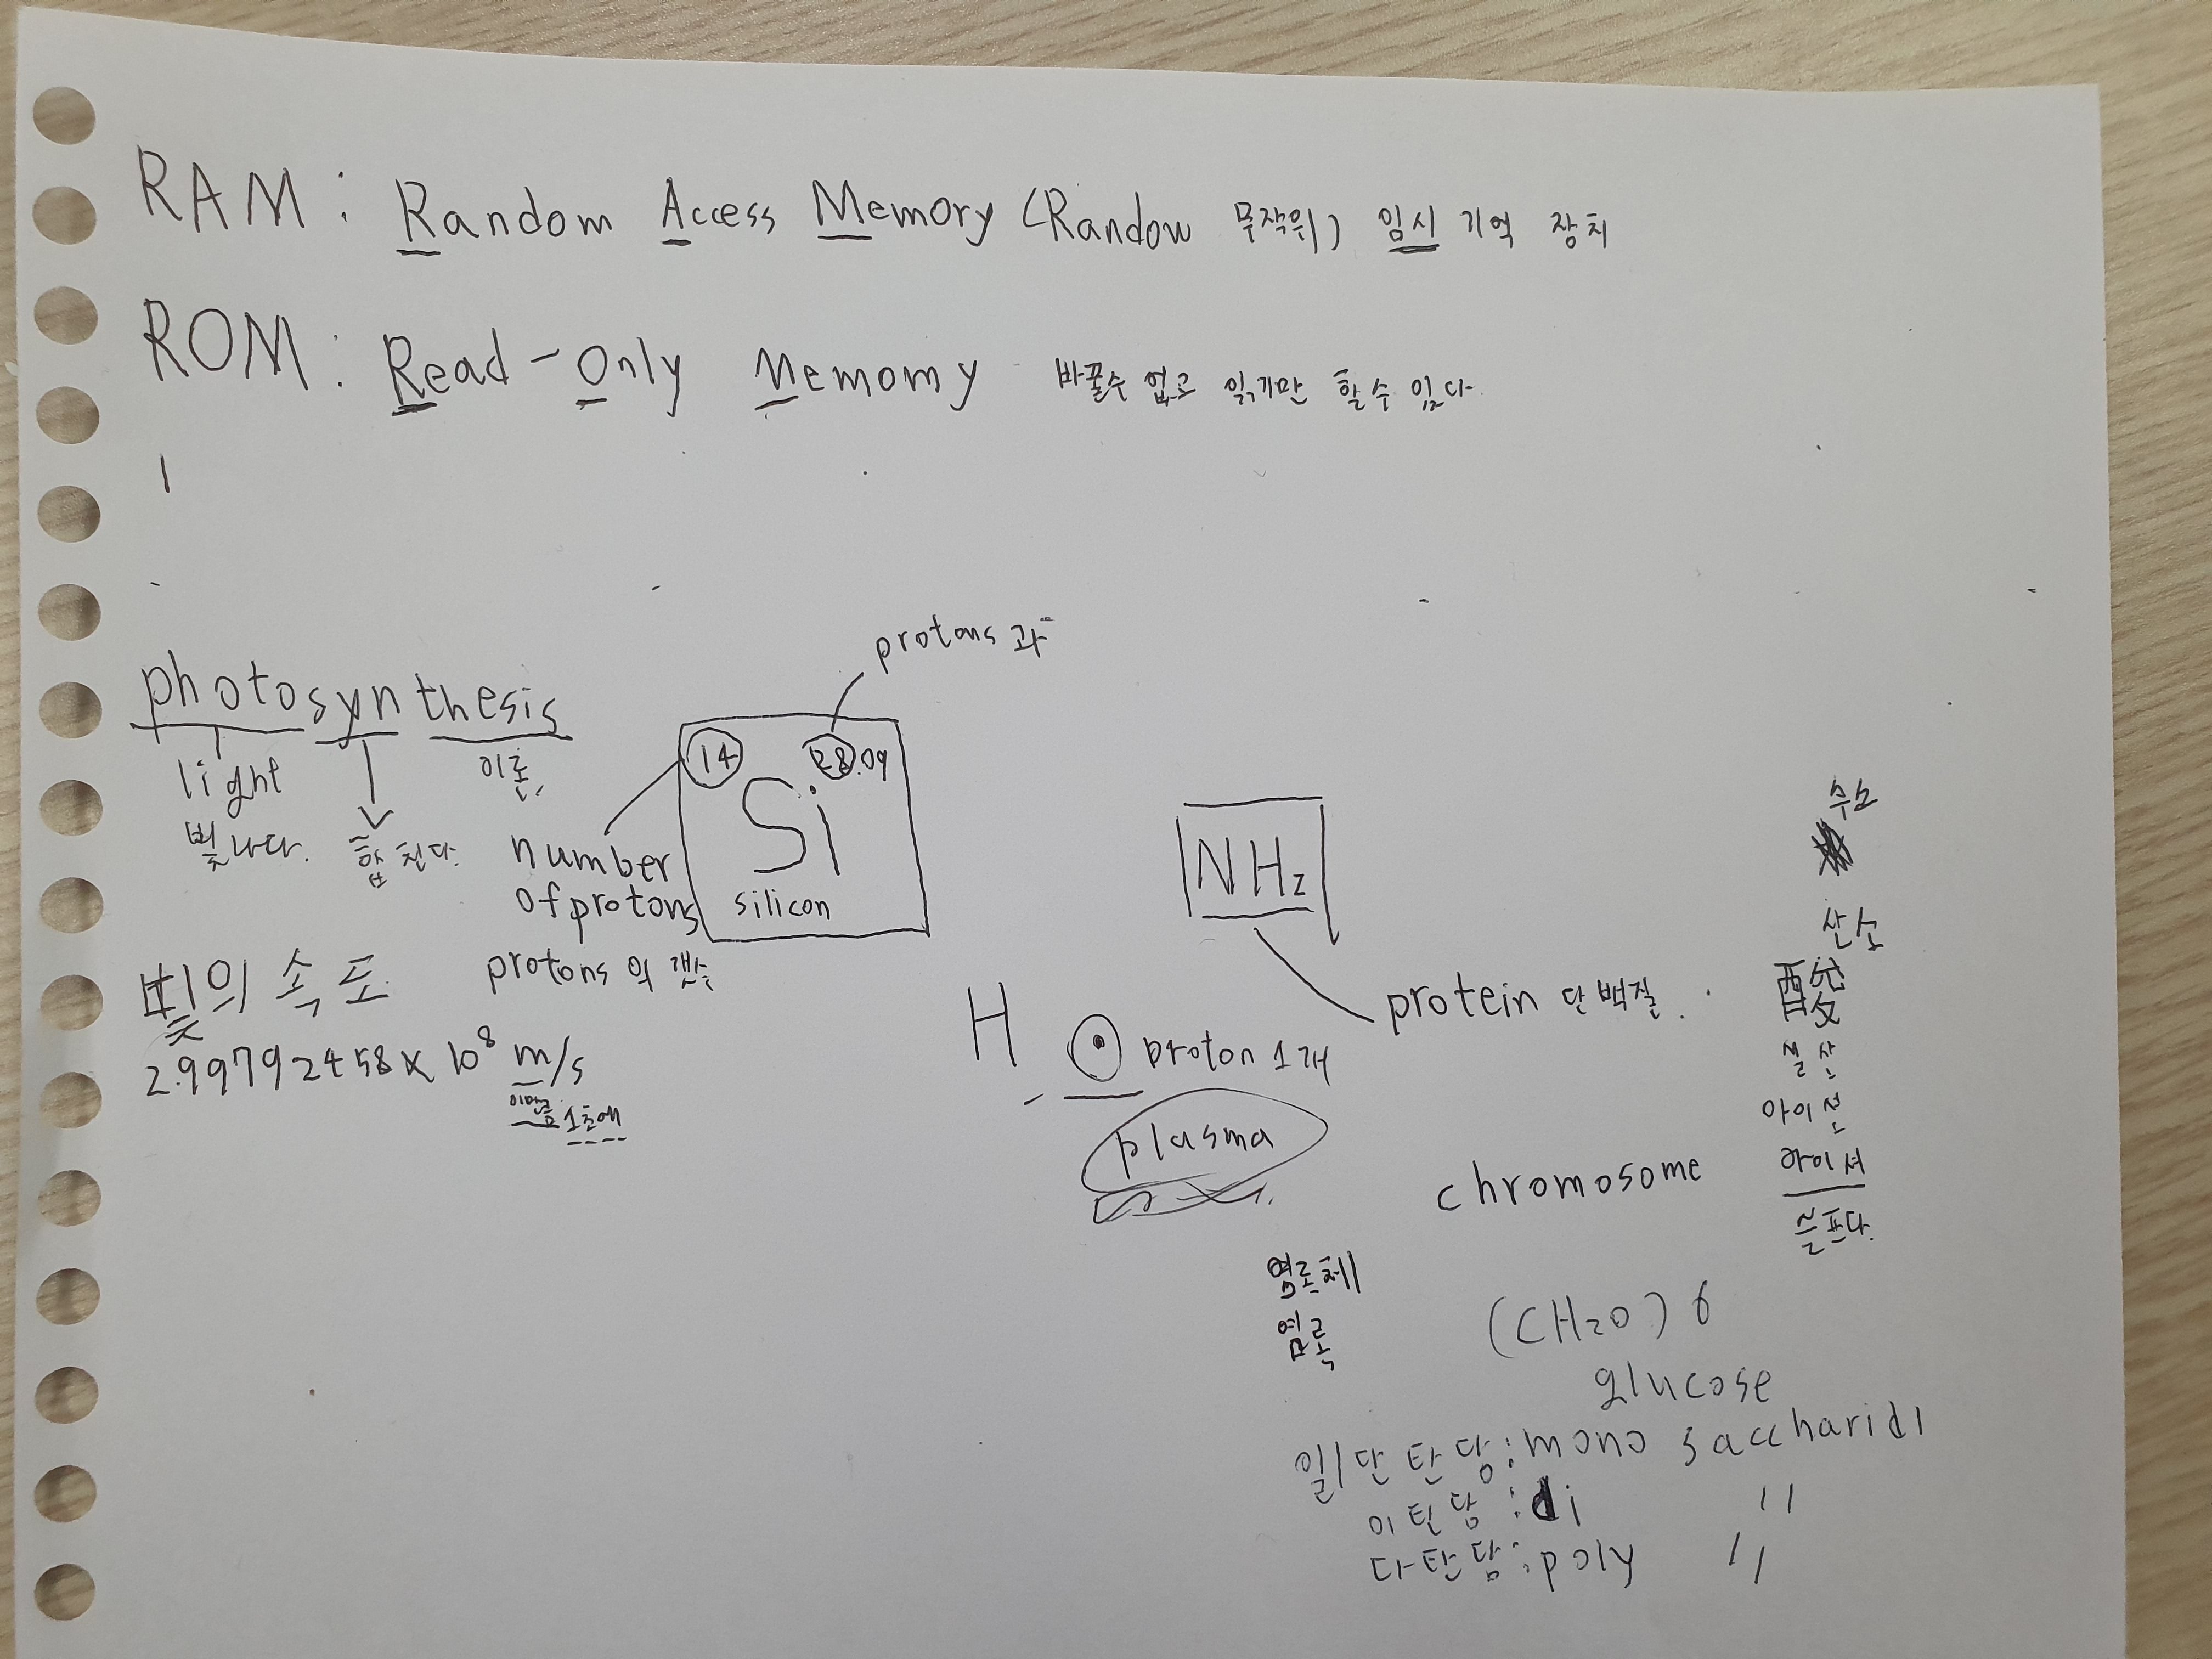 RAM : Random Access Memory (Randow 무작위) 임시 기억 장치
ROM : Read-Only Memomy 바꿀수 없고 읽기만 할수 있다.
protons 과
photosynthesis
light
빛나다.
합친다.
이론
14
28.09
Si
silicon
number
of protons
protons의 갯수
빛의 속도
2.99792458 x 10⁸ m/s
이만큼 1초에
NH₂
protein 단백질.
H
proton 1개
plasma
수소
산소
酸
실 산
아이 선
아이 셔
슬프다.
chromosome
염록
(CH₂O)6
glucose
일/단 탄당 : mono saccharidl
이탄당 : di 〃
다탄당 : poly 〃